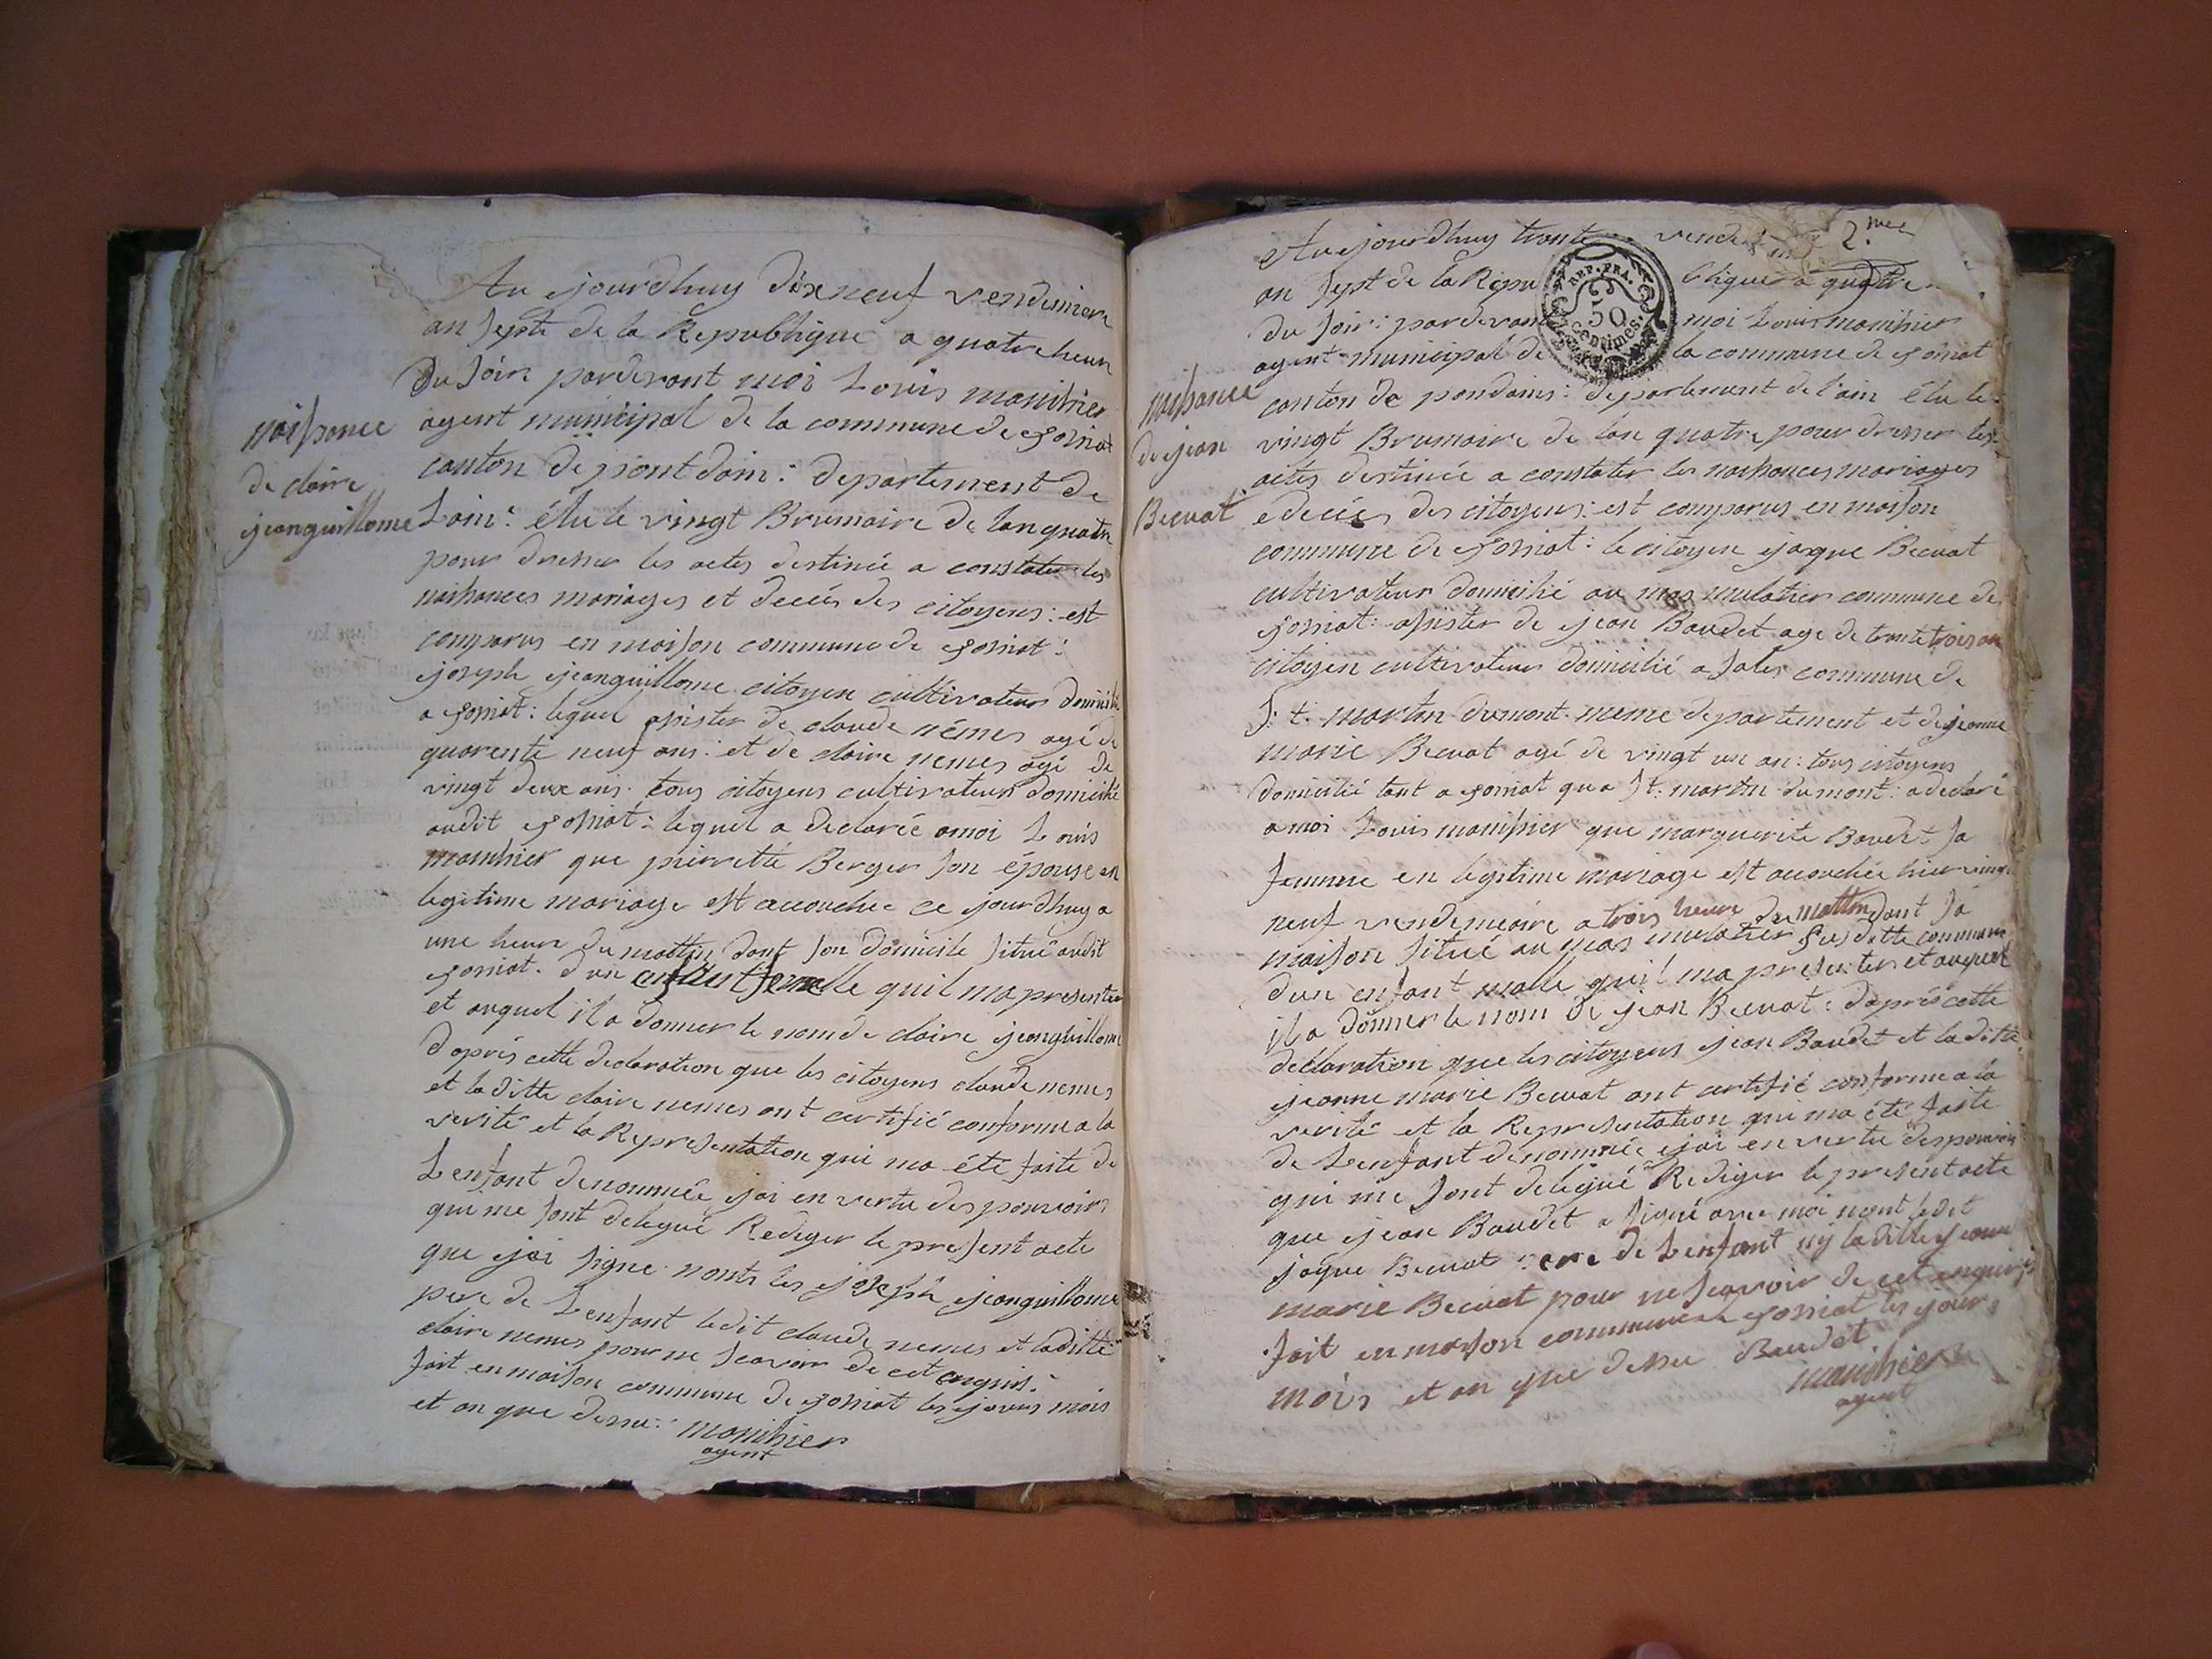 Au jourdhuy dixneuf vendemiere
an septe de la Republique a quatre heure
du soir pardevant moi Louis monihier
agent municipal de la commune de jossiat
canton de pontdain : departement de
Lain : élu le vingt Brumaire de lan quatre
pour dresser les actes destinée a constater les
naissances mariages et décés des citoyens : est
comparus en maison commune de jossiat :
joseph jeanguillome citoyen cultivateur domicilié
a jossiat : lequel assister de claude némes agé de
quarente neuf ans : et de claire nemes agé de
vingt deux ans . tous citoyens cultivateurs domicilié
audit jossiat : lequel a declarée amoi Louis
monihier que pierrette Berger son épouse en
legitime mariage est accouchée ce jourdhuy a
une heure du mattin dont son domicile situé audit
jossiat . dun enfant femelle quil ma presenter
et auquel il a donner le nom de claire jeanguillome
daprés cette declaration que les citoyens claude nemes
et laditte claire nemes ont certifié conforme a la
verité et la Representation qui ma été faite de
Lenfant denommée jai en vertu des pouvoirs
qui me sont delegué Rediger le present acte
que jai signe nonts les joseph jeanguillome
pere de Lenfant ledit claude nemes et laditte
claire nemes pour ne scavoir de cet enquis .
fait en maison commune de jossiat les jours mois
et an que dessu : monihier
agent
naissance
de claire
jeanguillome
2.me
Au jourdhuy trente vend
an sept de la Repu blique a quatre
du soir : pardevant moi Louis monihier
agent municipal de la commune de jossiat
canton de pondains : departement de l'ain élu le
vingt Brumaire de lan quatre pour dresser les
actes destinée a constater les naissances mariages
e decées des citoyens : est comparus en maison
commune de jossiat : le citoyen jaque Becuat
cultivateur domicilié au mas mulatier commune de
jossiat : assister de jean Baudet age de trente trois an
citoyen cultivateur domicilié a sales commune de
s.t martin dumont . meme departement et de jeanne
marie Becuat agé de vingt un an : tous citoyens
domicilié tant a jossiat qua st. martin dumont : a declaré
amoi Louis monihier que marguerite Baudet sa
femme en legitime mariage est acouchée hier vingt
neuf vendemeaire a trois heure du mattin dont sa
maison situé au mas mulatier susditte commune
dun enfant malle quil ma presenter et auquel
il a donner le nom de jean Becuat : daprés cette
declaration que les citoyens jean Baudet et laditte
jeanne marie Becuat ont certifié conforme a la
verité et la Representation qui ma été faite
de Lenfant denommée jai en vertu des pouvoirs
qui me sont delegué Rediger le present acte
que jean Baudet a signé avec moi nont ledit
jaque Becuat pere de Lenfant ny laditte jeanne
marie Becuat pour ne scavoir de cet enquis
fait en maison commune de jossiat les jours
mois et an que dessu Baudet
monihier
agent
naissance
de jean
Becuat
REP. FRA.
50
centimes.